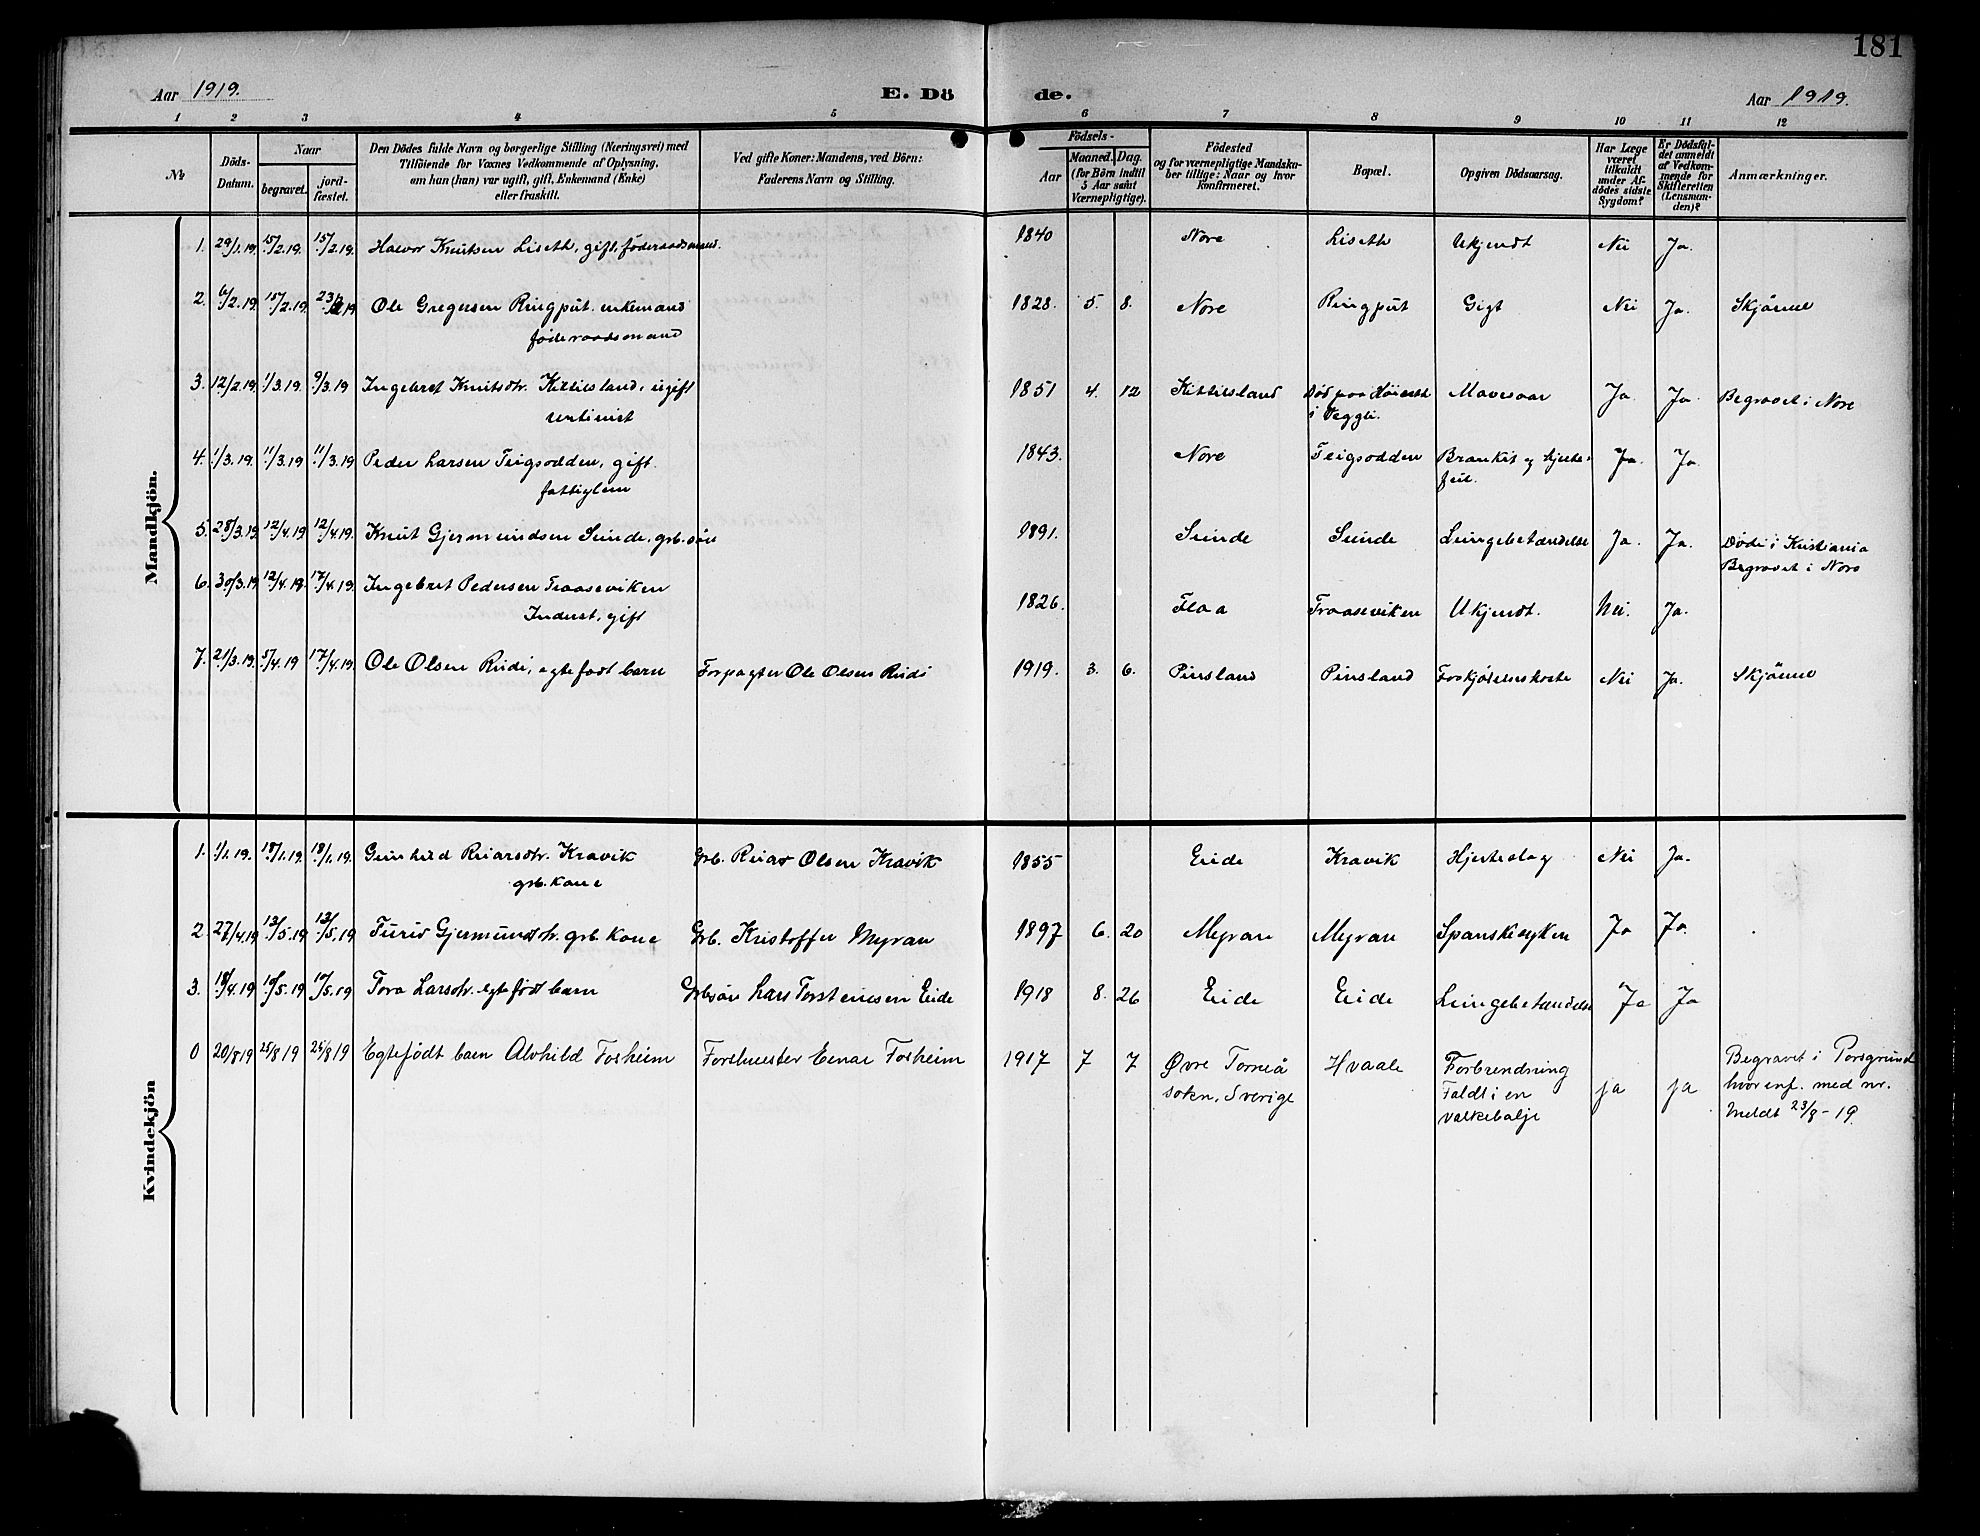 181
Aar 1919.
E. Dö de.
Aar 1919.
1 2 3 4 5 6 7 8 9 10 11 12
No
Döds-
Datum.
Naar
begravet.
jord-
fæstet.
Den Dödes fulde Navn og borgerlige Stilling (Næringsvei) med
Tilföiende for Voxnes Vedkommende af Oplysning,
om han (hun) var ugift, gift, Enkemand (Enke)
eller fraskilt.
Ved gifte Koner: Mandens, ved Börn:
Faderens Navn og Stilling.
Födsels-
Aar
Maaned. Dag.
(for Börn indtil
5 Aar samt
Værnepligtige).
Födested
og for værnepligtige Mandska-
ber tillige: Naar og hvor
konfirmeret.
Bopæl.
Opgiven Dödsaarsag.
Har Læge
været
tilkaldt
under Af-
dödes sidste
Sygdom?
Er Dödsfal-
det anmeldt
af Vedkom-
mende for
Skifteretten
(Lensman-
den)?
Anmærkninger.
Mandkjön.
1. 29/1.19. 15/2.19. 15/2.19. Halvor Knutsen Liseth, gift, föderaadsmand. 1840 Nore Liseth Ukjendt Nei Ja.
2. 6/2.19. 15/2.19. 23/2 19 Ole Gregersen Ringput. enkemand 1828. 5. 8. Nore Ringput Gigt Nei Ja. Skjönne
föderaadsmand
3. 12/2.19. 1/3.19. 9/3.19 Ingebret Knutsdtr. Kittilsland, ugift 1851 4. 12 Kittilsland Död paa Höiseth Mavesaar Ja Ja. Begravet i Nore
rentenist i Veggli.
4. 1/3.19. 11/3.19 11/3.19 Peder Larsen Teigsodden, gift. 1843. Nore Teigsodden Bronkit og hjerte-
fattiglem feil. Ja. Ja.
5. 28/3.19 12/4.19 12/4.19. Knut Gjermundsen Sunde, grb. sön 1891. Sunde Sunde Lungebetændelse Ja. Ja. Döde i Kristiania
Begravet i Nore
6. 30/3.19 12/4.19 17/4.19. Ingebret Pedersen Traaseviken
Inderst, gift 1826. Flaa Traaseviken Ukjendt. Nei. Ja.
7. 21/3.19. 5/4.19 17/4.19. Ole Olsen Rudi, egtefödt barn Forpagter Ole Olsen Rudi 1919. 3. 6. Pinsland Pinsland Forkjölelseshoste Nei Ja. Skjönne
Kvindekjön
1. 1/1.19. 18/1.19. 18/1.19. Gunhild Roarsdtr. Kravik Grb. Roar Olsen Kravik 1855 Eide Kravik Hjerteslag Nei Ja.
grb. kone
2. 27/4.19 13/5.19 13/5.19 Turid Gjermundsdtr. grb. kone Grb. Kristoffer Myran 1897 6. 20 Myran Myran Spanskesyken Ja Ja.
3. 18/4.19 10/5.19 10/5.19 Tora Larsdtr. egtefödt barn Grbsön Lars Torsteinsen Eide 1918 8. 26 Eide Eide Lungebetændelse Ja Ja
0 20/8 19 25/8 19 25/8 19 Egtefödt barn Alvhild Forheim Forstmester Einar Forheim 1917 7 7 Øvre Torneå Hvaale Forbrendning ja ja Begravet i Porsgrund
sokn, Sverige Faldt i en hvor enf. med nr.
vaskebalje Meldt 23/8-19.